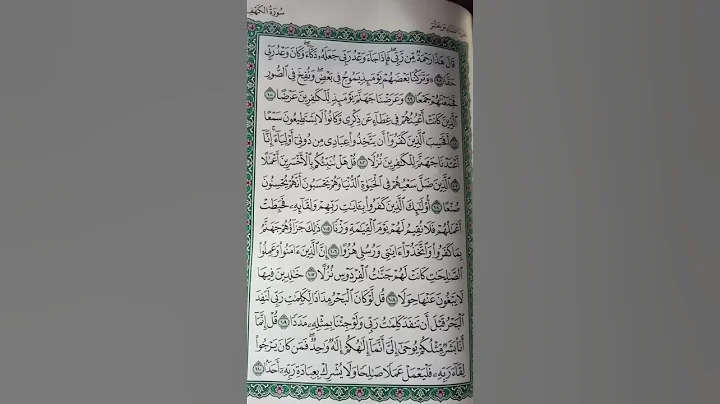 سُورَةُ الكَهْفِ
قَالَ هَٰذَا رَحْمَةٌ مِّن رَّبِّي ۖ فَإِذَا جَآءَ وَعْدُ رَبِّي جَعَلَهُۥ دَكَّآءَ ۖ وَكَانَ وَعْدُ رَبِّي
حَقًّا ٩٨ ۞ وَتَرَكْنَا بَعْضَهُمْ يَوْمَئِذٍ يَمُوجُ فِي بَعْضٍ ۖ وَنُفِخَ فِي ٱلصُّورِ
فَجَمَعْنَٰهُمْ جَمْعًا ٩٩ وَعَرَضْنَا جَهَنَّمَ يَوْمَئِذٍ لِّلْكَٰفِرِينَ عَرْضًا ١٠٠
ٱلَّذِينَ كَانَتْ أَعْيُنُهُمْ فِي غِطَآءٍ عَن ذِكْرِي وَكَانُوا۟ لَا يَسْتَطِيعُونَ سَمْعًا
١٠١ أَفَحَسِبَ ٱلَّذِينَ كَفَرُوٓا۟ أَن يَتَّخِذُوا۟ عِبَادِي مِن دُونِيٓ أَوْلِيَآءَ ۚ إِنَّآ
أَعْتَدْنَا جَهَنَّمَ لِلْكَٰفِرِينَ نُزُلًا ١٠٢ قُلْ هَلْ نُنَبِّئُكُم بِٱلْأَخْسَرِينَ أَعْمَٰلًا
١٠٣ ٱلَّذِينَ ضَلَّ سَعْيُهُمْ فِي ٱلْحَيَوٰةِ ٱلدُّنْيَا وَهُمْ يَحْسَبُونَ أَنَّهُمْ يُحْسِنُونَ
صُنْعًا ١٠٤ أُو۟لَٰٓئِكَ ٱلَّذِينَ كَفَرُوا۟ بِـَٔايَٰتِ رَبِّهِمْ وَلِقَآئِهِۦ فَحَبِطَتْ
أَعْمَٰلُهُمْ فَلَا نُقِيمُ لَهُمْ يَوْمَ ٱلْقِيَٰمَةِ وَزْنًا ١٠٥ ذَٰلِكَ جَزَآؤُهُمْ جَهَنَّمُ
بِمَا كَفَرُوا۟ وَٱتَّخَذُوٓا۟ ءَايَٰتِي وَرُسُلِي هُزُوًا ١٠٦ إِنَّ ٱلَّذِينَ ءَامَنُوا۟ وَعَمِلُوا۟
ٱلصَّٰلِحَٰتِ كَانَتْ لَهُمْ جَنَّٰتُ ٱلْفِرْدَوْسِ نُزُلًا ١٠٧ خَٰلِدِينَ فِيهَا
لَا يَبْغُونَ عَنْهَا حِوَلًا ١٠٨ قُل لَّوْ كَانَ ٱلْبَحْرُ مِدَادًا لِّكَلِمَٰتِ رَبِّي لَنَفِدَ
ٱلْبَحْرُ قَبْلَ أَن تَنفَدَ كَلِمَٰتُ رَبِّي وَلَوْ جِئْنَا بِمِثْلِهِۦ مَدَدًا ١٠٩ قُلْ إِنَّمَآ
أَنَا۠ بَشَرٌ مِّثْلُكُمْ يُوحَىٰٓ إِلَيَّ أَنَّمَآ إِلَٰهُكُمْ إِلَٰهٌ وَٰحِدٌ ۖ فَمَن كَانَ يَرْجُوا۟
لِقَآءَ رَبِّهِۦ فَلْيَعْمَلْ عَمَلًا صَٰلِحًا وَلَا يُشْرِكْ بِعِبَادَةِ رَبِّهِۦٓ أَحَدًۢا ١١٠